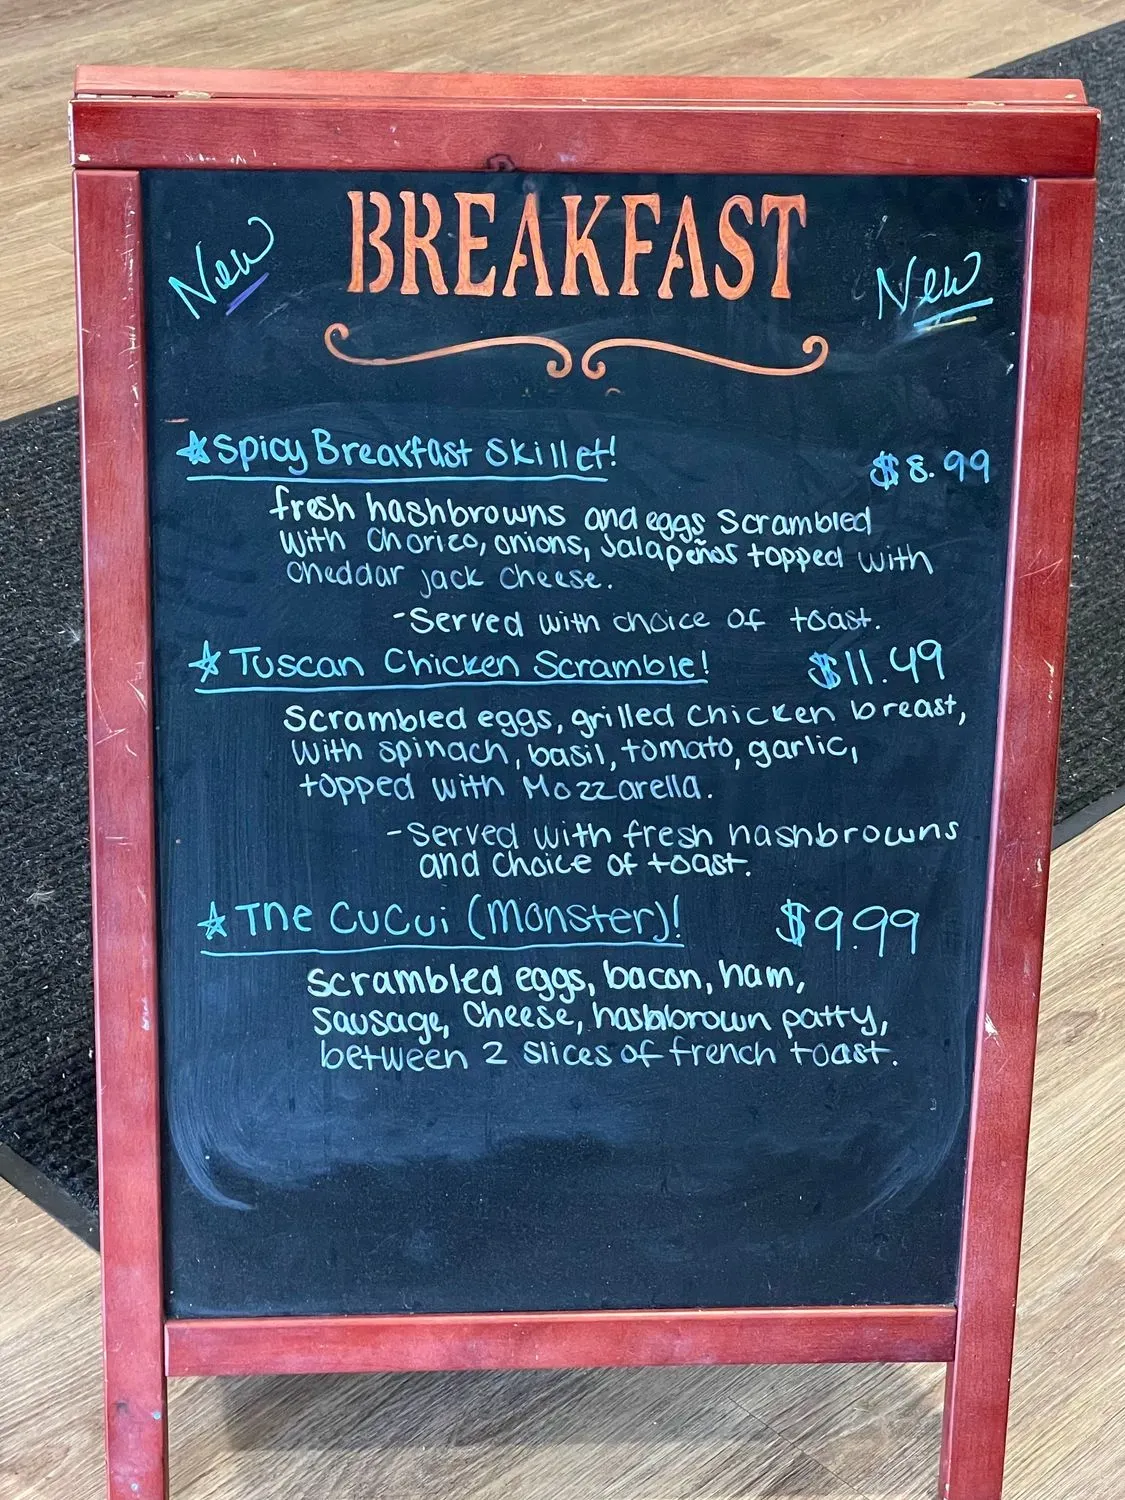 BREAKFAST
New
New
☆Spicy Breakfast Skillet! $8.99
fresh hashbrowns and eggs scrambled
with Chorizo, onions, Jalapeños topped with
Cheddar jack cheese.
-Served with choice of toast.
☆Tuscan Chicken Scramble! $11.49
Scrambled eggs, grilled chicken breast,
with spinach, basil, tomato, garlic,
topped with Mozzarella.
-Served with fresh hashbrowns
and choice of toast.
☆The CuCui (Monster)! $9.99
scrambled eggs, bacon, ham,
sausage, Cheese, hashbrown patty,
between 2 slices of french toast.